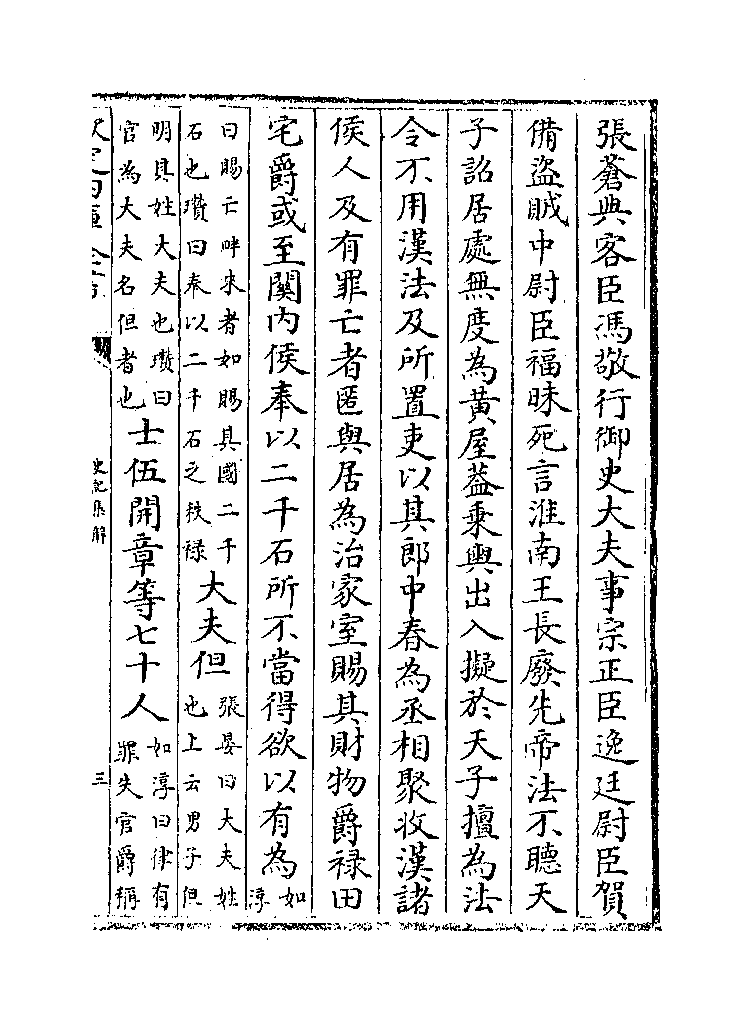 張蒼典客臣馮敬行御史大夫事宗正臣逸廷尉臣賀
備盜賊中尉臣福昧死言淮南王長廢先帝法不聽天
子詔居處無度為黄屋葢乗輿出入擬於天子擅為法
令不用漢法及所置吏以其郎中春為丞相聚收漢諸
侯人及有罪亡者匿與居為治家室賜其財物爵禄田
宅爵或至關内侯奉以二千石所不當得欲以有為如淳
曰賜亡畔来者如賜其國二千石也瓚曰奉以二千石之秩禄大夫但張晏曰大夫姓也上云男子但
明其姓大夫也瓚曰官為大夫名但者也士伍開章等七十人如淳曰律有罪失官爵稱
史記集解
三